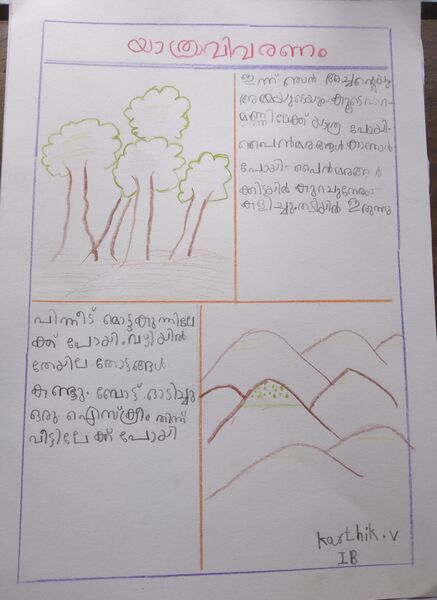 യാത്രാവിവരണം
ഇന്ന് ഞാൻ അച്ഛന്റെയും
അമ്മയുടെയും കൂടെ വാഗ-
മണ്ണിലേക്ക് യാത്ര പോയി.
പൈൻമരങ്ങൾ കാണാൻ
പോയി. പൈൻമരങ്ങൾ
ക്കിടയിൽ കുറച്ചുനേരം
കളിച്ചു. തടിയിൽ ഇരുന്നു
പിന്നീട് മൊട്ടക്കുന്നിലേ
ക്ക് പോയി. വഴിയിൽ
തേയില തോട്ടങ്ങൾ
കണ്ടു. ബോട്ട് ഓടിച്ചു
ഒരു ഐസ്ക്രീം തിന്ന്
വീട്ടിലേക്ക് പോയി
Karthik.V
IB